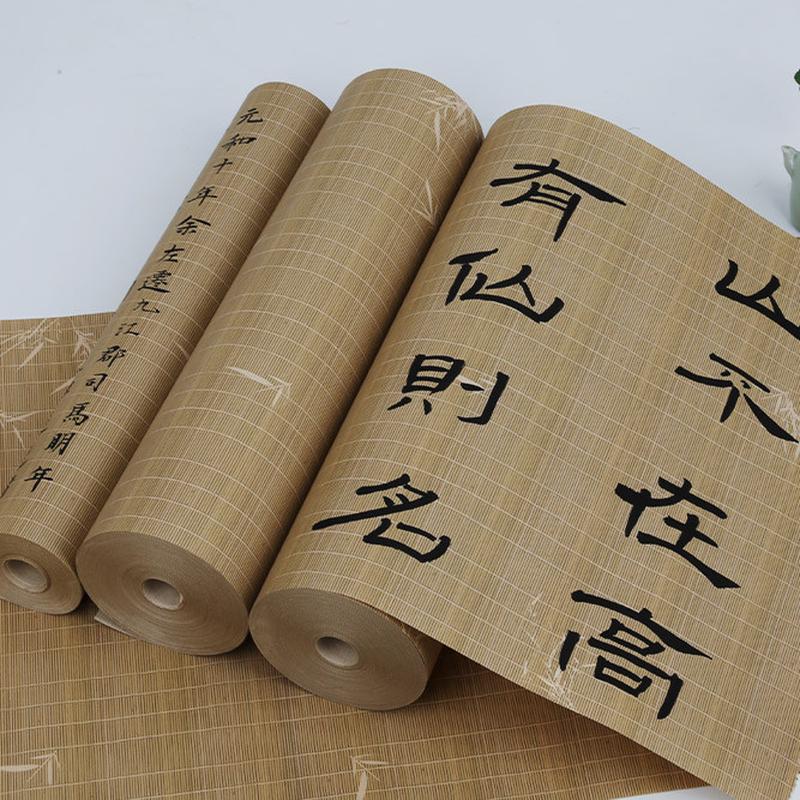 山不在高
有仙則名
元和十年余左遷九江郡司馬明年